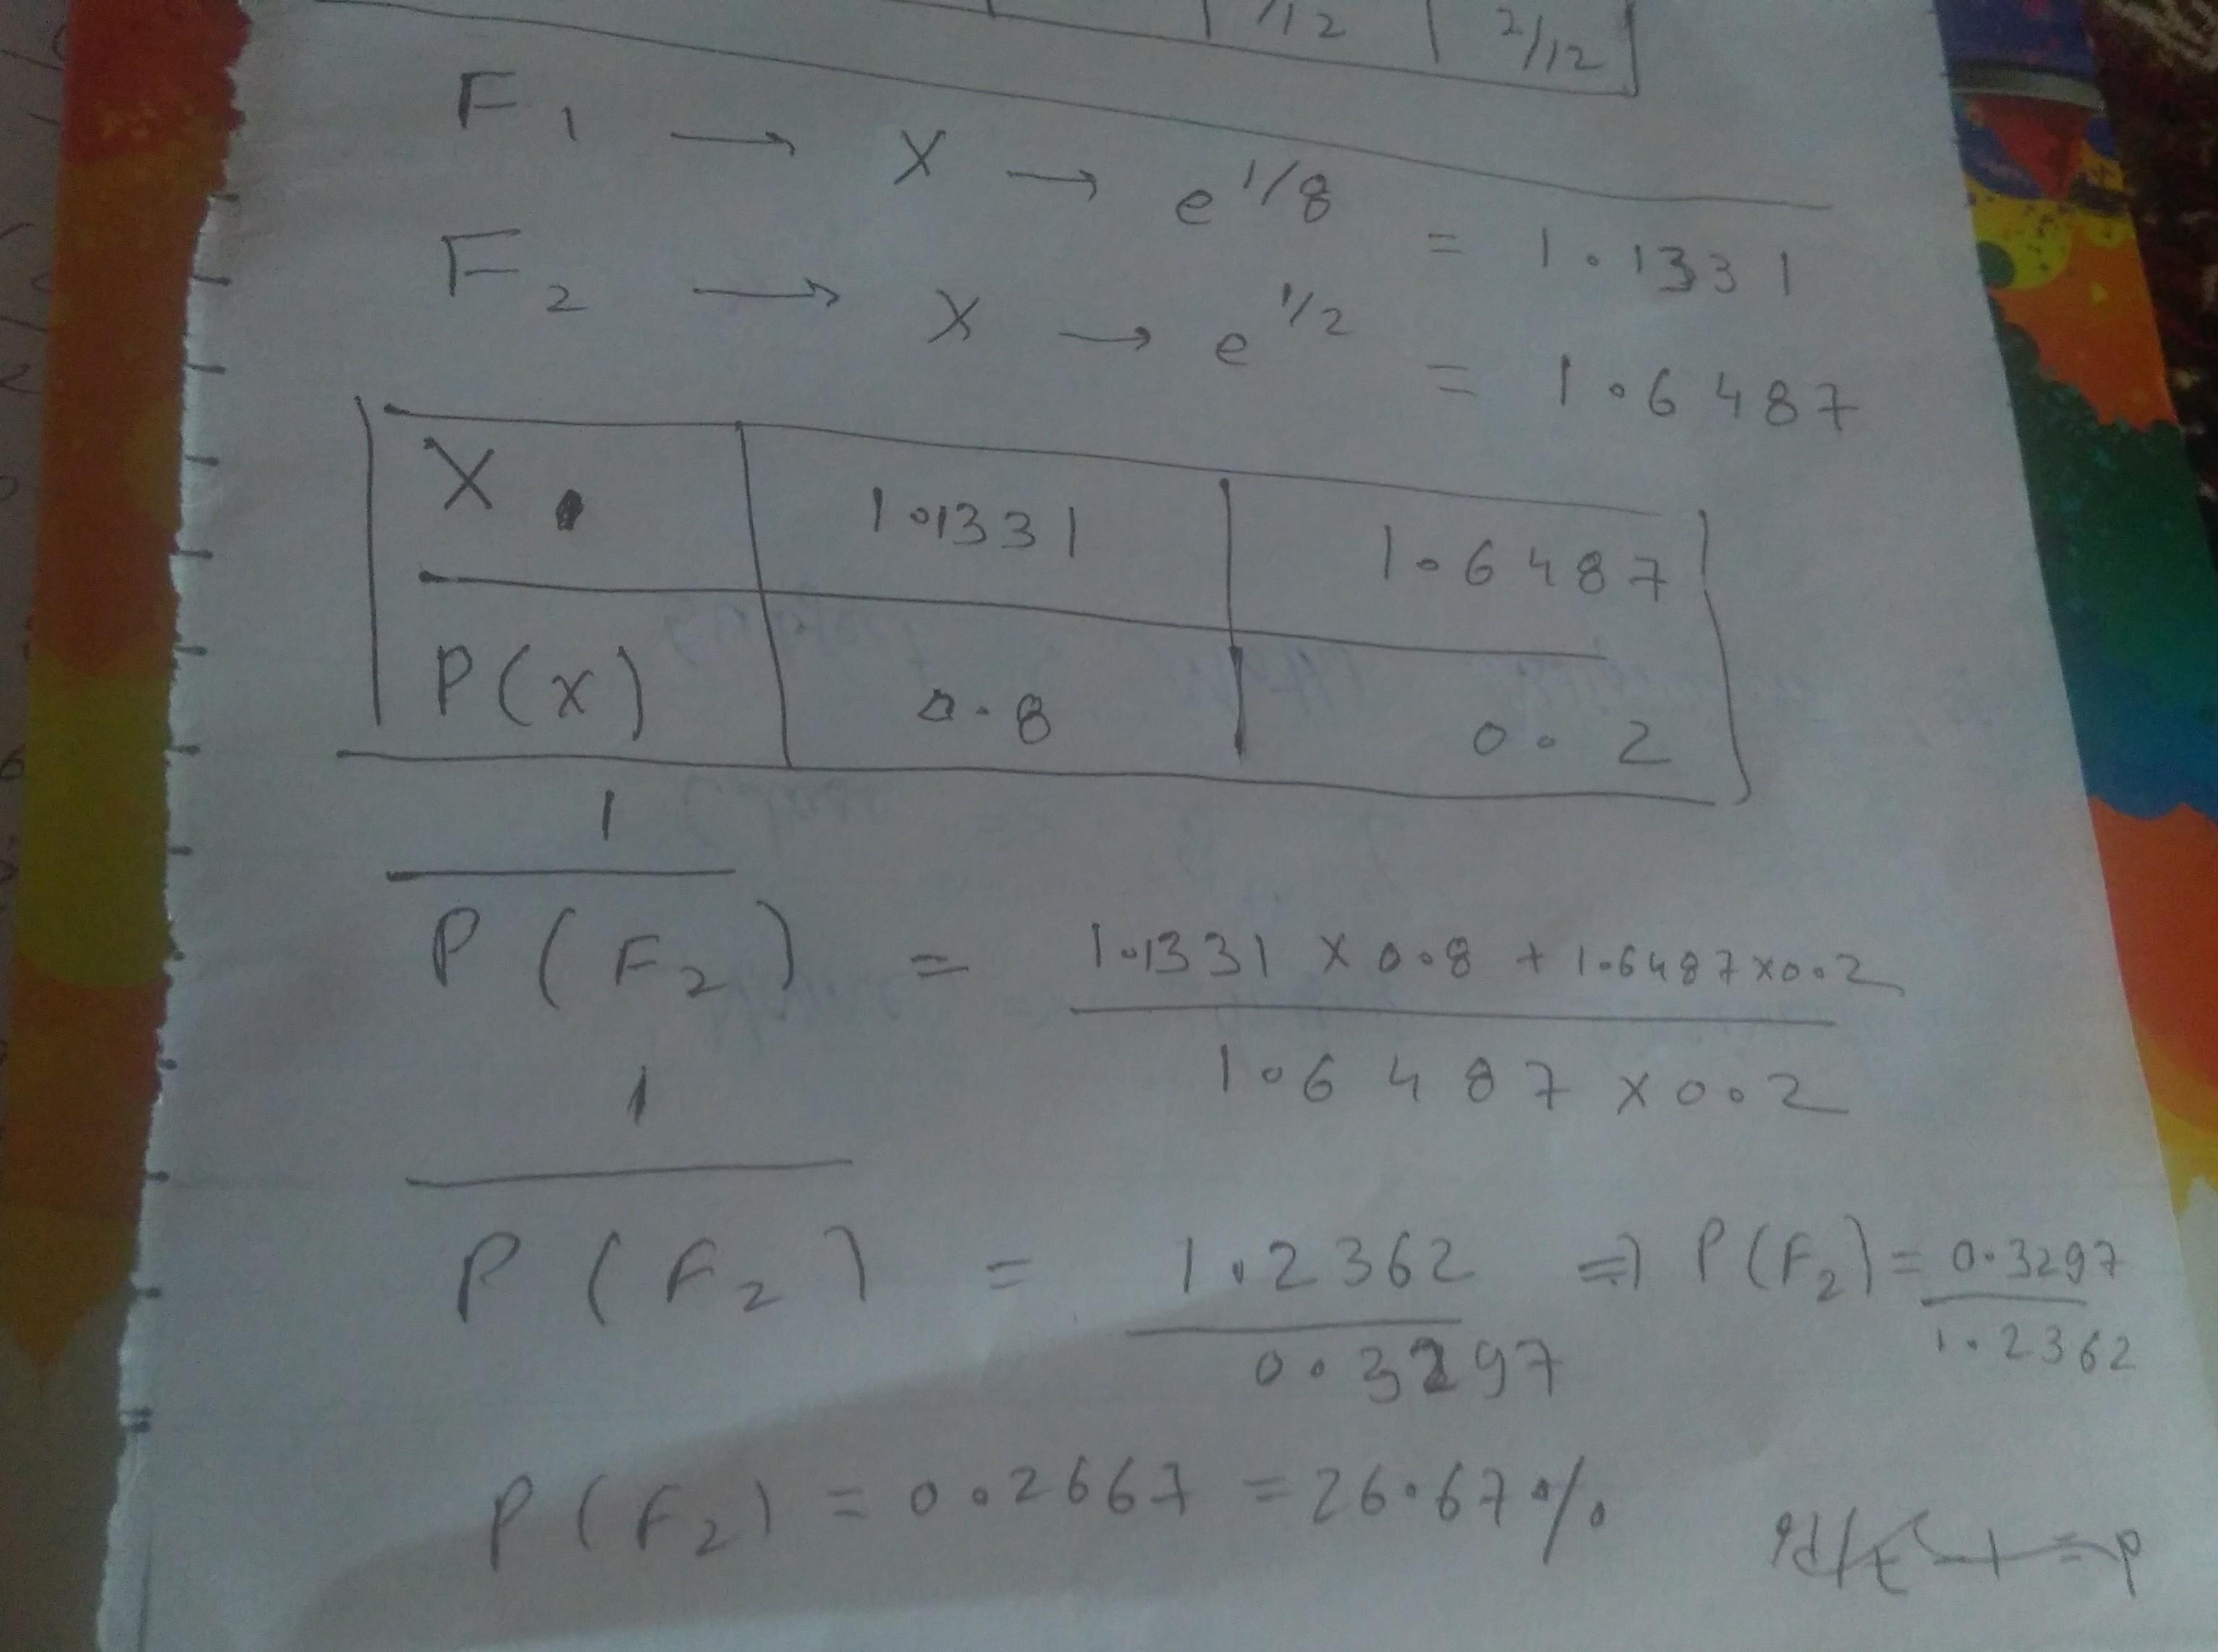 1/12 | 2/12
F₁ → X → e^1/8 = 1.1331
F₂ → X → e^1/2 = 1.6487
X 1.1331 1.6487
P(x) 0.8 0.2
1
P(F₂) = 1.1331 x 0.8 + 1.6487x0.2
1.6487 x0.2
1
P(F₂) = 1.2362 ⇒ P(F₂) = 0.3297
0.3297 1.2362
P(F₂) = 0.2667 = 26.67%